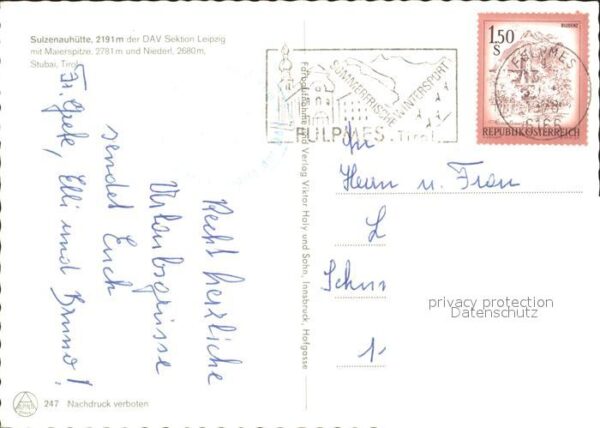 Sulzenauhütte, 2191 m der DAV Sektion Leipzig
mit Maierspitze, 2781 m und Niederl, 2680 m,
Stubai, Tirol
Recht herzliche
Urlaubsgrüsse
sendet Euch
Elli und Bruno!
247 Nachdruck verboten
Farbaufnahme und Verlag Viktor Hoiy und Sohn, Innsbruck, Hofgasse
SOMMERFRISCHE WINTERSPORT
FULPMES · Tirol
BLUDENZ
1.50
S
REPUBLIK ÖSTERREICH
FULPMES
6166
An
Herrn u. Frau
L
Schus
1
privacy protection
Datenschutz